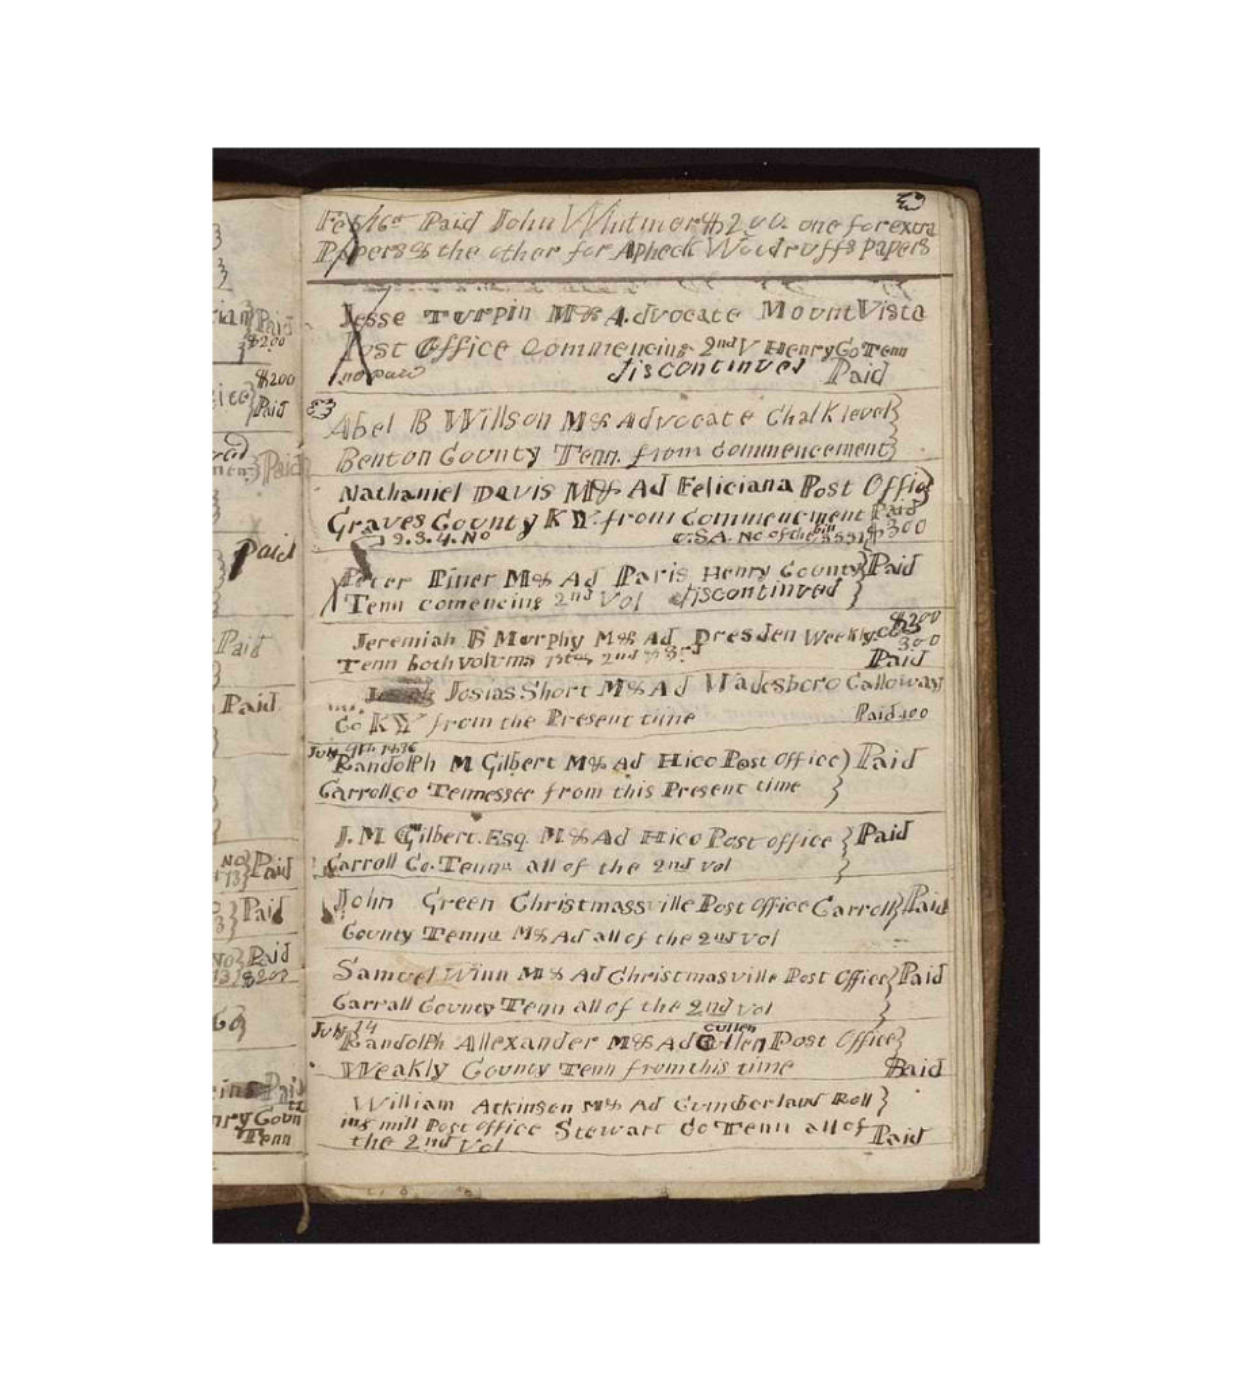 Paid
$200
$200
Paid
Paid
Paid
Paid
Paid
No
13 Paid
Paid
No Paid
13 $200
Henry Coun
Tenn
Feb 16th Paid John Whitmor $2.00. one for extra
Papers & the other for Apheck Woodruffs Papers
Jesse Turpin M & Advocate Mount Vista
Post Office Commencing 2nd V Henry Co Tenn
no paid discontinued Paid
Abel B Willson M & Advocate Chalk level
Benton County Tenn. from commencement
Nathaniel Davis M & Ad Feliciana Post Offic
Graves County KY. from Commencment Paid
2.3.4. No U.S.A. No of the bill 5551 $300
Peter Piner M & Ad Paris Henry County Paid
Tenn comencing 2nd Vol discontinued
Jeremiah B Murphy M & Ad Dresden Weekly Co $200
300
Tenn both volums 1st & 2nd & 3rd Paid
Josias Short M & Ad Wadesboro Calloway
Co KY from the Present time Paid
July 9th 1836
Randolph M Gilbert M & Ad Hico Post Office Paid
Carroll co Tennessee from this Present time
J. M Gilbert. Esq. M & Ad Hico Post office Paid
Carroll Co. Tennu all of the 2nd vol
John Green Christmassville Post Office Carroll Paid
County Tennu M & Ad all of the 2nd Vol
Samuel Winn M & Ad Christmasville Post Office Paid
Carrall County Tenn all of the 2nd Vol
July 14
Cullen
Randolph Allexander M & Ad Cullen Post Office
Weakly County Tenn from this time Paid
William Atkinson M & Ad Cumberland Roll
ing mill Post office Stewart Co Tenn all of Paid
the 2nd Vol